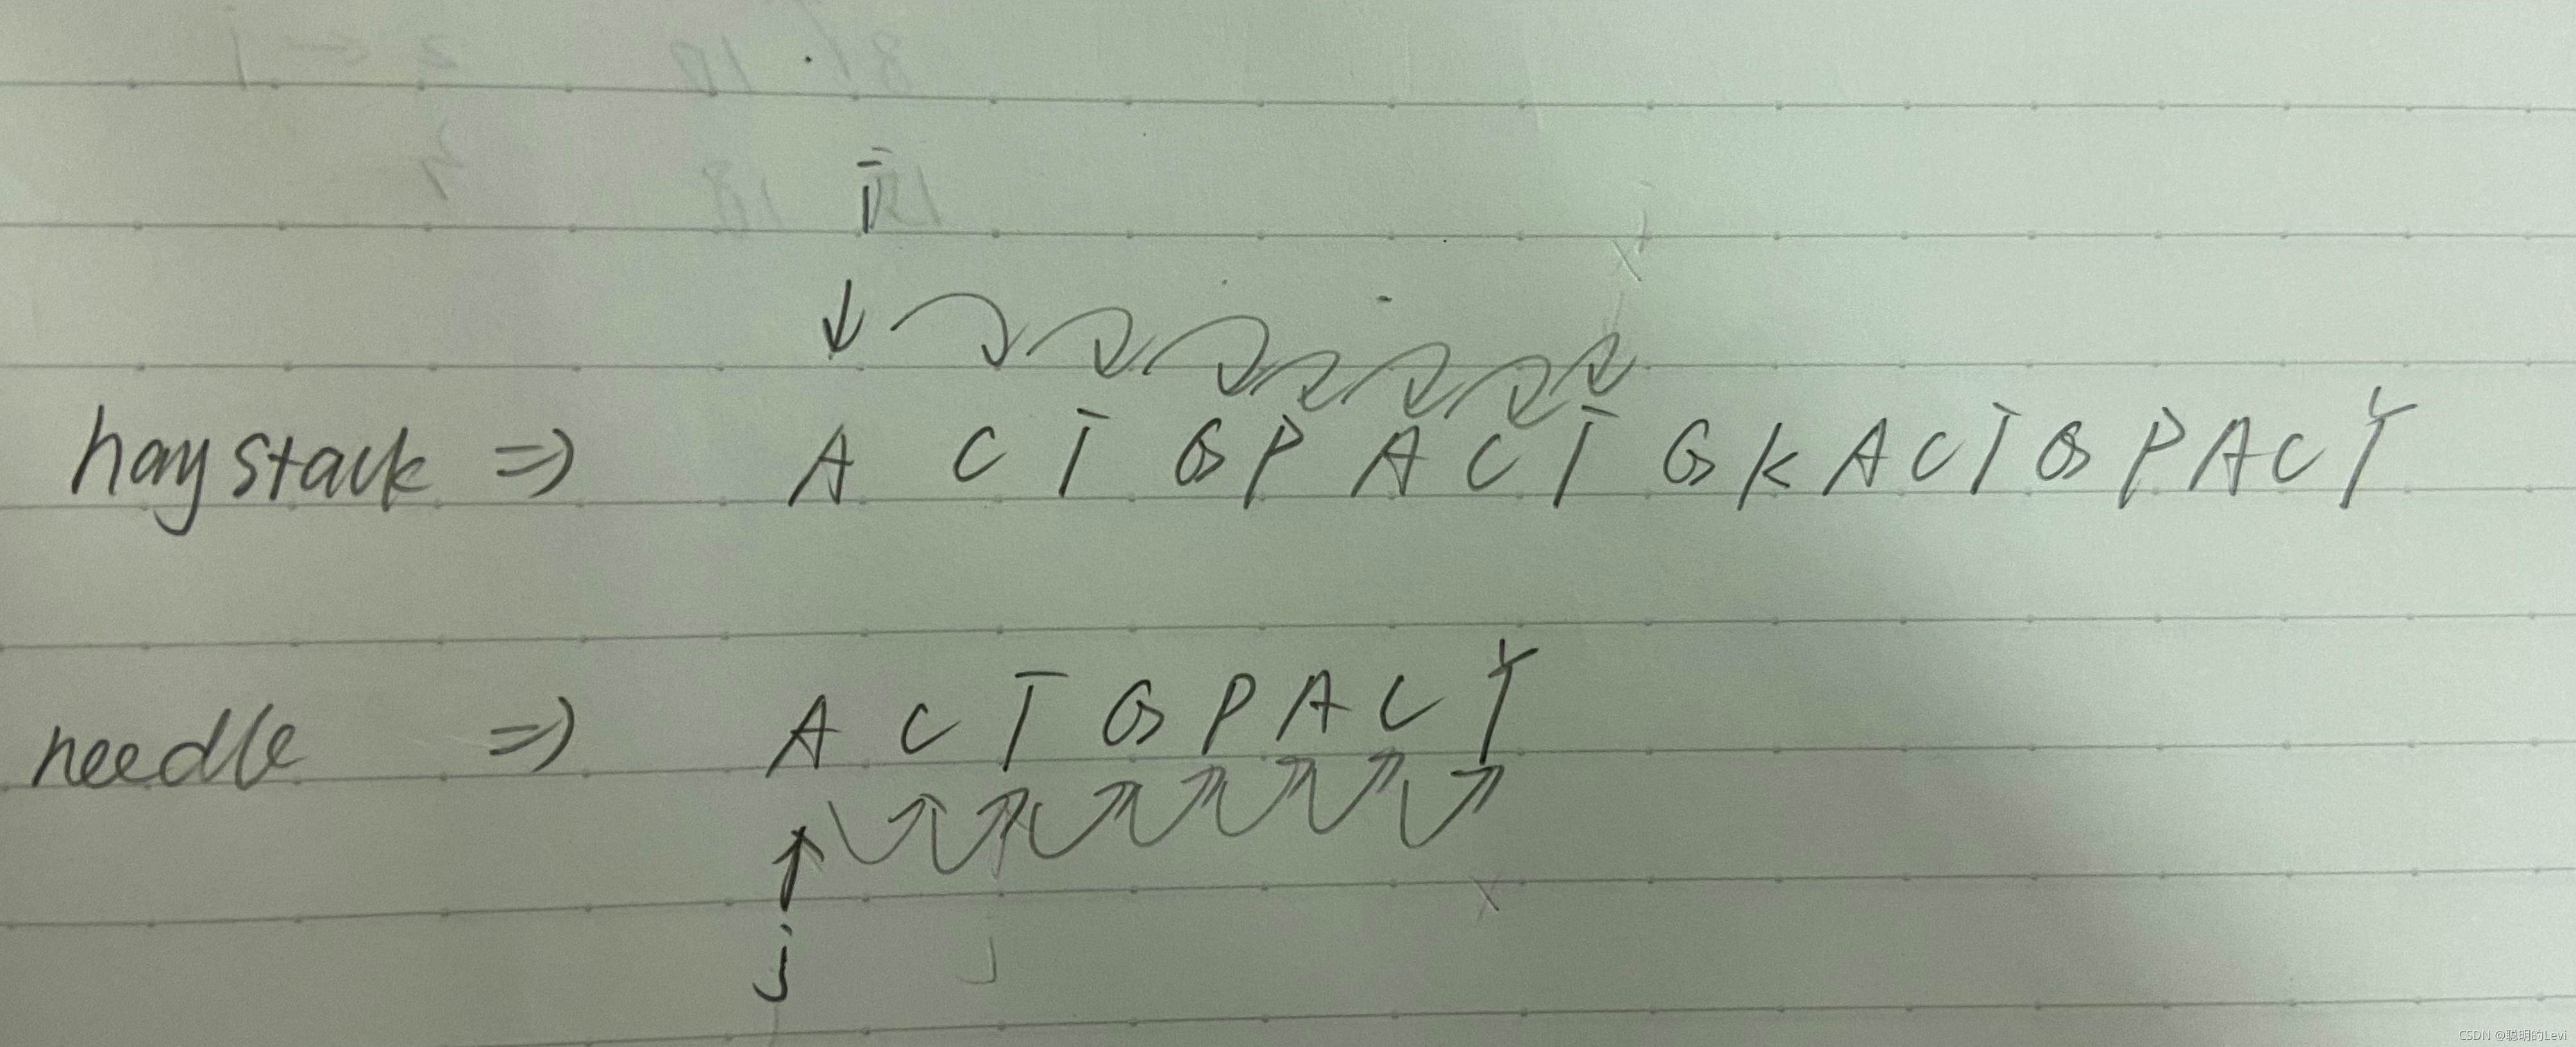 i
haystack => A C T G P A C T G K A C T G P A C Y
needle => A C T G P A C Y
j j
CSDN @聪明的Levi